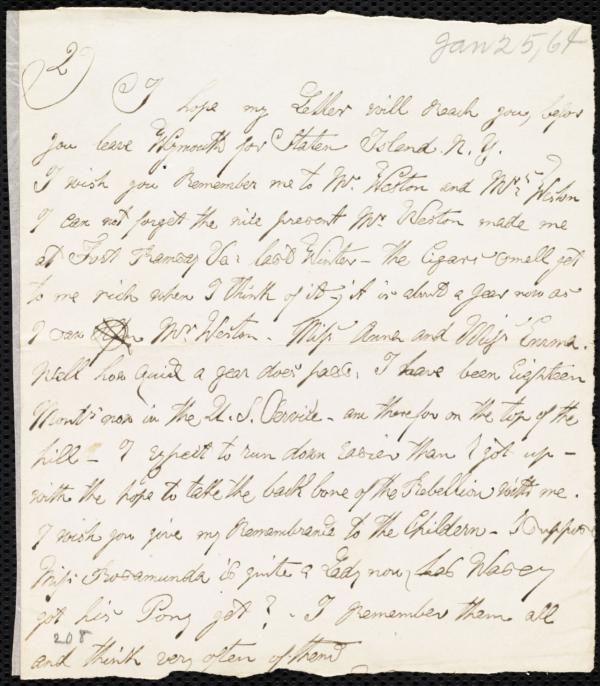 Jan 25, 64
2
I hope my Letter will reach you, befor
you leave Weymouth for Staten Island. N. Y.
I wish you Remember me to Mr. Weston and Mrs. Weston
I can not forget the nice present Mr Weston made me
at Fort Ramsey Va: last Winter – the Cigars smell yet
to me rich when I think of it – it is about a year now as
I saw Mr Weston. Miss Anna and Miss Emma.
Well how quick a year does pass. I have been Eighteen
Monts now in the U. S. Service – am therefor on the top of the
hill – I expect to run down easier than I got up –
with the hope to take the back bone of the Rebellion with me.
I wish you give my Remembrance to the Childern – I suppose
Miss Rosamunda is quite a Lady now, has Warey
got his Pony yet? – I remember them all
208
and think very often of them